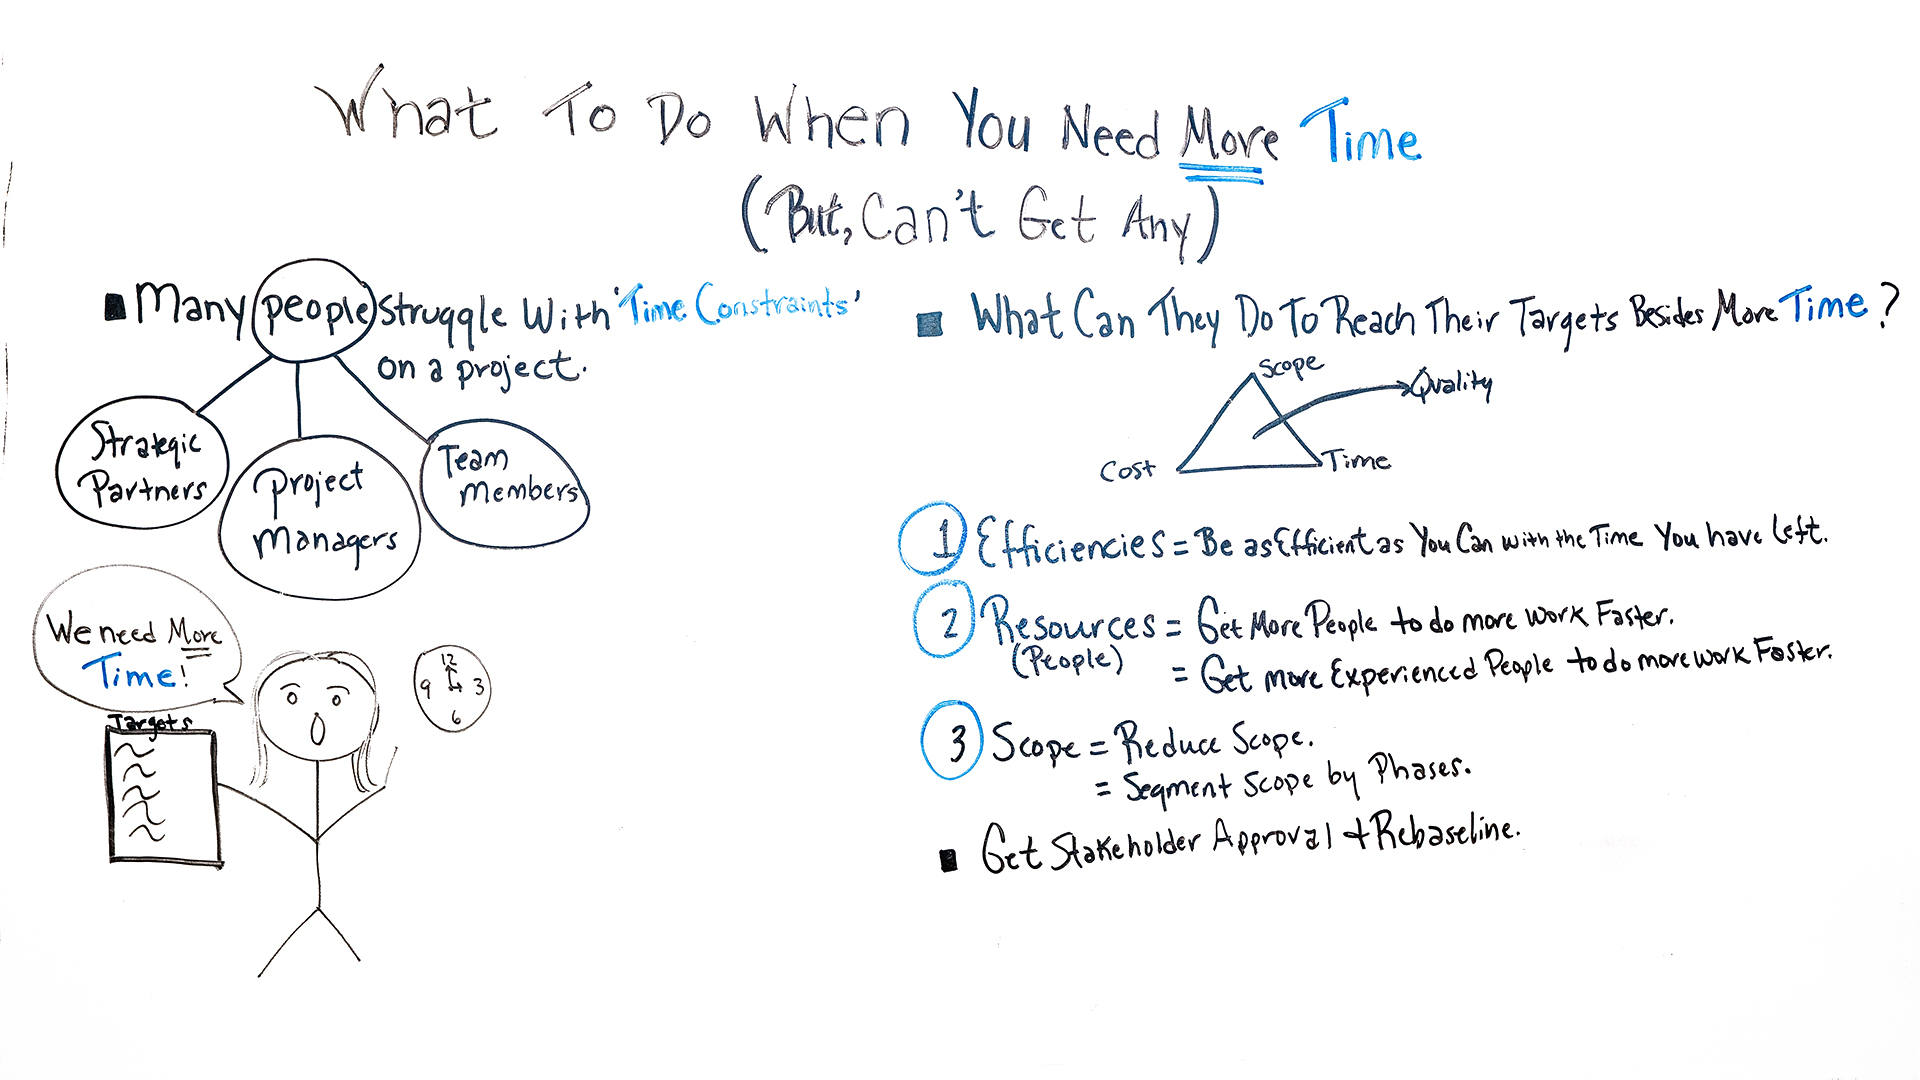 What To Do When You Need More Time
(But, Can't Get Any)
■ Many people struggle With 'Time Constraints'
on a project.
Strategic
Partners
Project
Managers
Team
Members
We need More
Time!
Targets
12
9 3
6
■ What Can They Do To Reach Their Targets Besides More Time?
Scope
Quality
Cost
Time
1 Efficiencies = Be as Efficient as You Can with the Time You have Left.
2 Resources = Get More People to do more work Faster.
(People) = Get more Experienced People to do more work Faster.
3 Scope = Reduce Scope.
= Segment Scope by Phases.
■ Get Stakeholder Approval + Rebaseline.